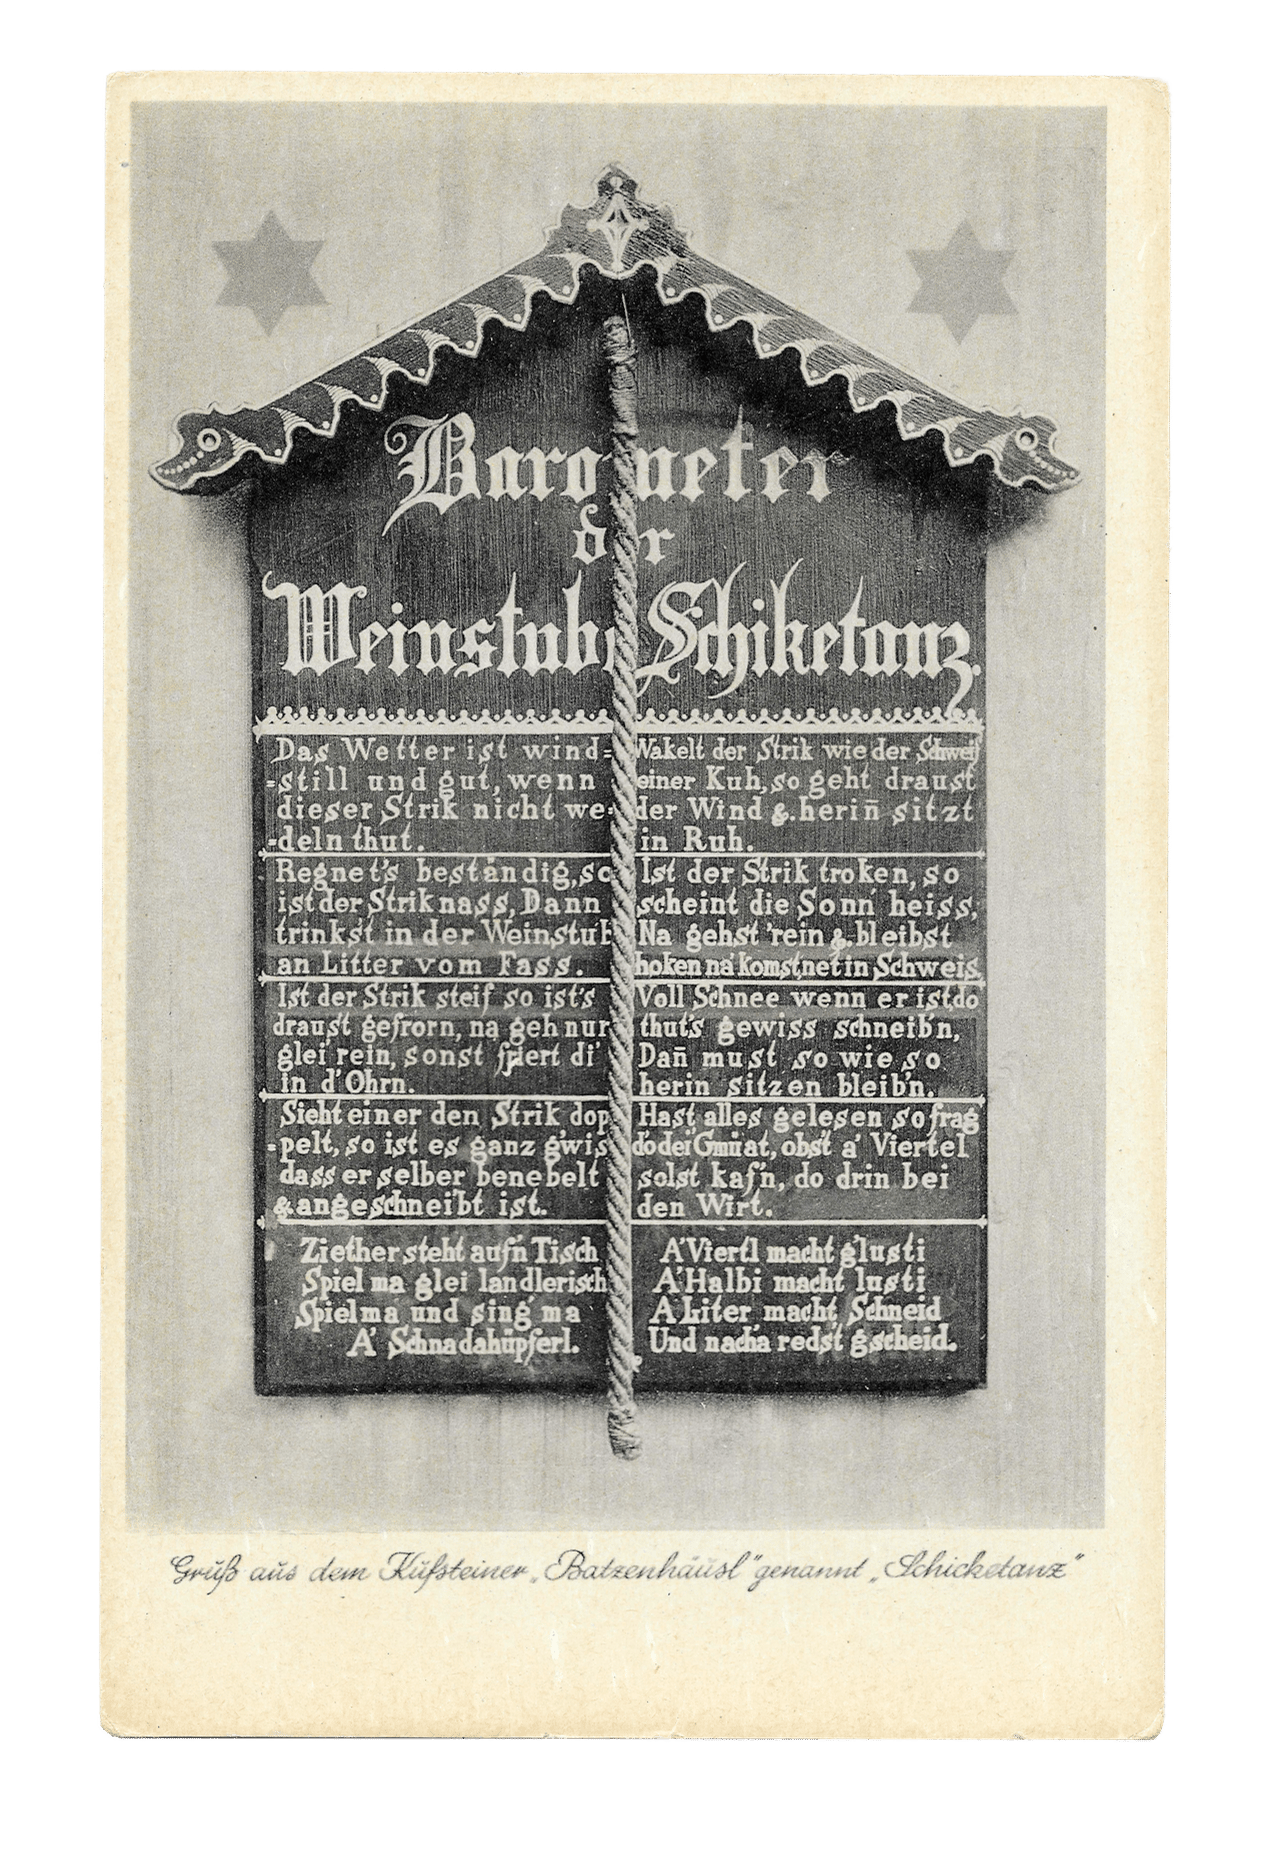 Barometer
der
Weinstube Schiketanz.
Das Wetter ist wind=
=still und gut, wenn
dieser Strik nicht we=
=deln thut.
Wakelt der Strik wie der Schweif
einer Kuh, so geht draust
der Wind &. herin̄ sitzt
in Ruh.
Regnet's beständig, so
ist der Strik nass, Dann
trinkst in der Weinstub
an Litter vom Fass.
Ist der Strik troken, so
scheint die Sonn heiss,
Na gehst 'rein &. bleibst
hoken na komst net in Schweis.
Ist der Strik steif so ist's
draust gefrorn, na geh nur
glei rein, sonst friert di'
in d'Ohrn.
Voll Schnee wenn er ist, do
thut's gewiss schneib'n,
Dan̄ must so wie so
herin sitzen bleib'n.
Sieht einer den Strik dop
=pelt, so ist es ganz g'wis
dass er selber benebelt
& angeschneibt ist.
Hast alles gelesen so frag
do dei Gmüat, obst a' Viertel
solst kaf'n, do drin bei
den Wirt.
Ziether steht auf'n Tisch
Spiel ma glei landlerisch
Spiel ma und sing ma
A' Schnadahüpferl.
A' Viertl macht g'lusti
A' Halbi macht lusti
A Liter macht Schneid
Und nach'a redst gscheid.
Gruß aus dem Kufsteiner „Batzenhäusl" genannt „Schicketanz"